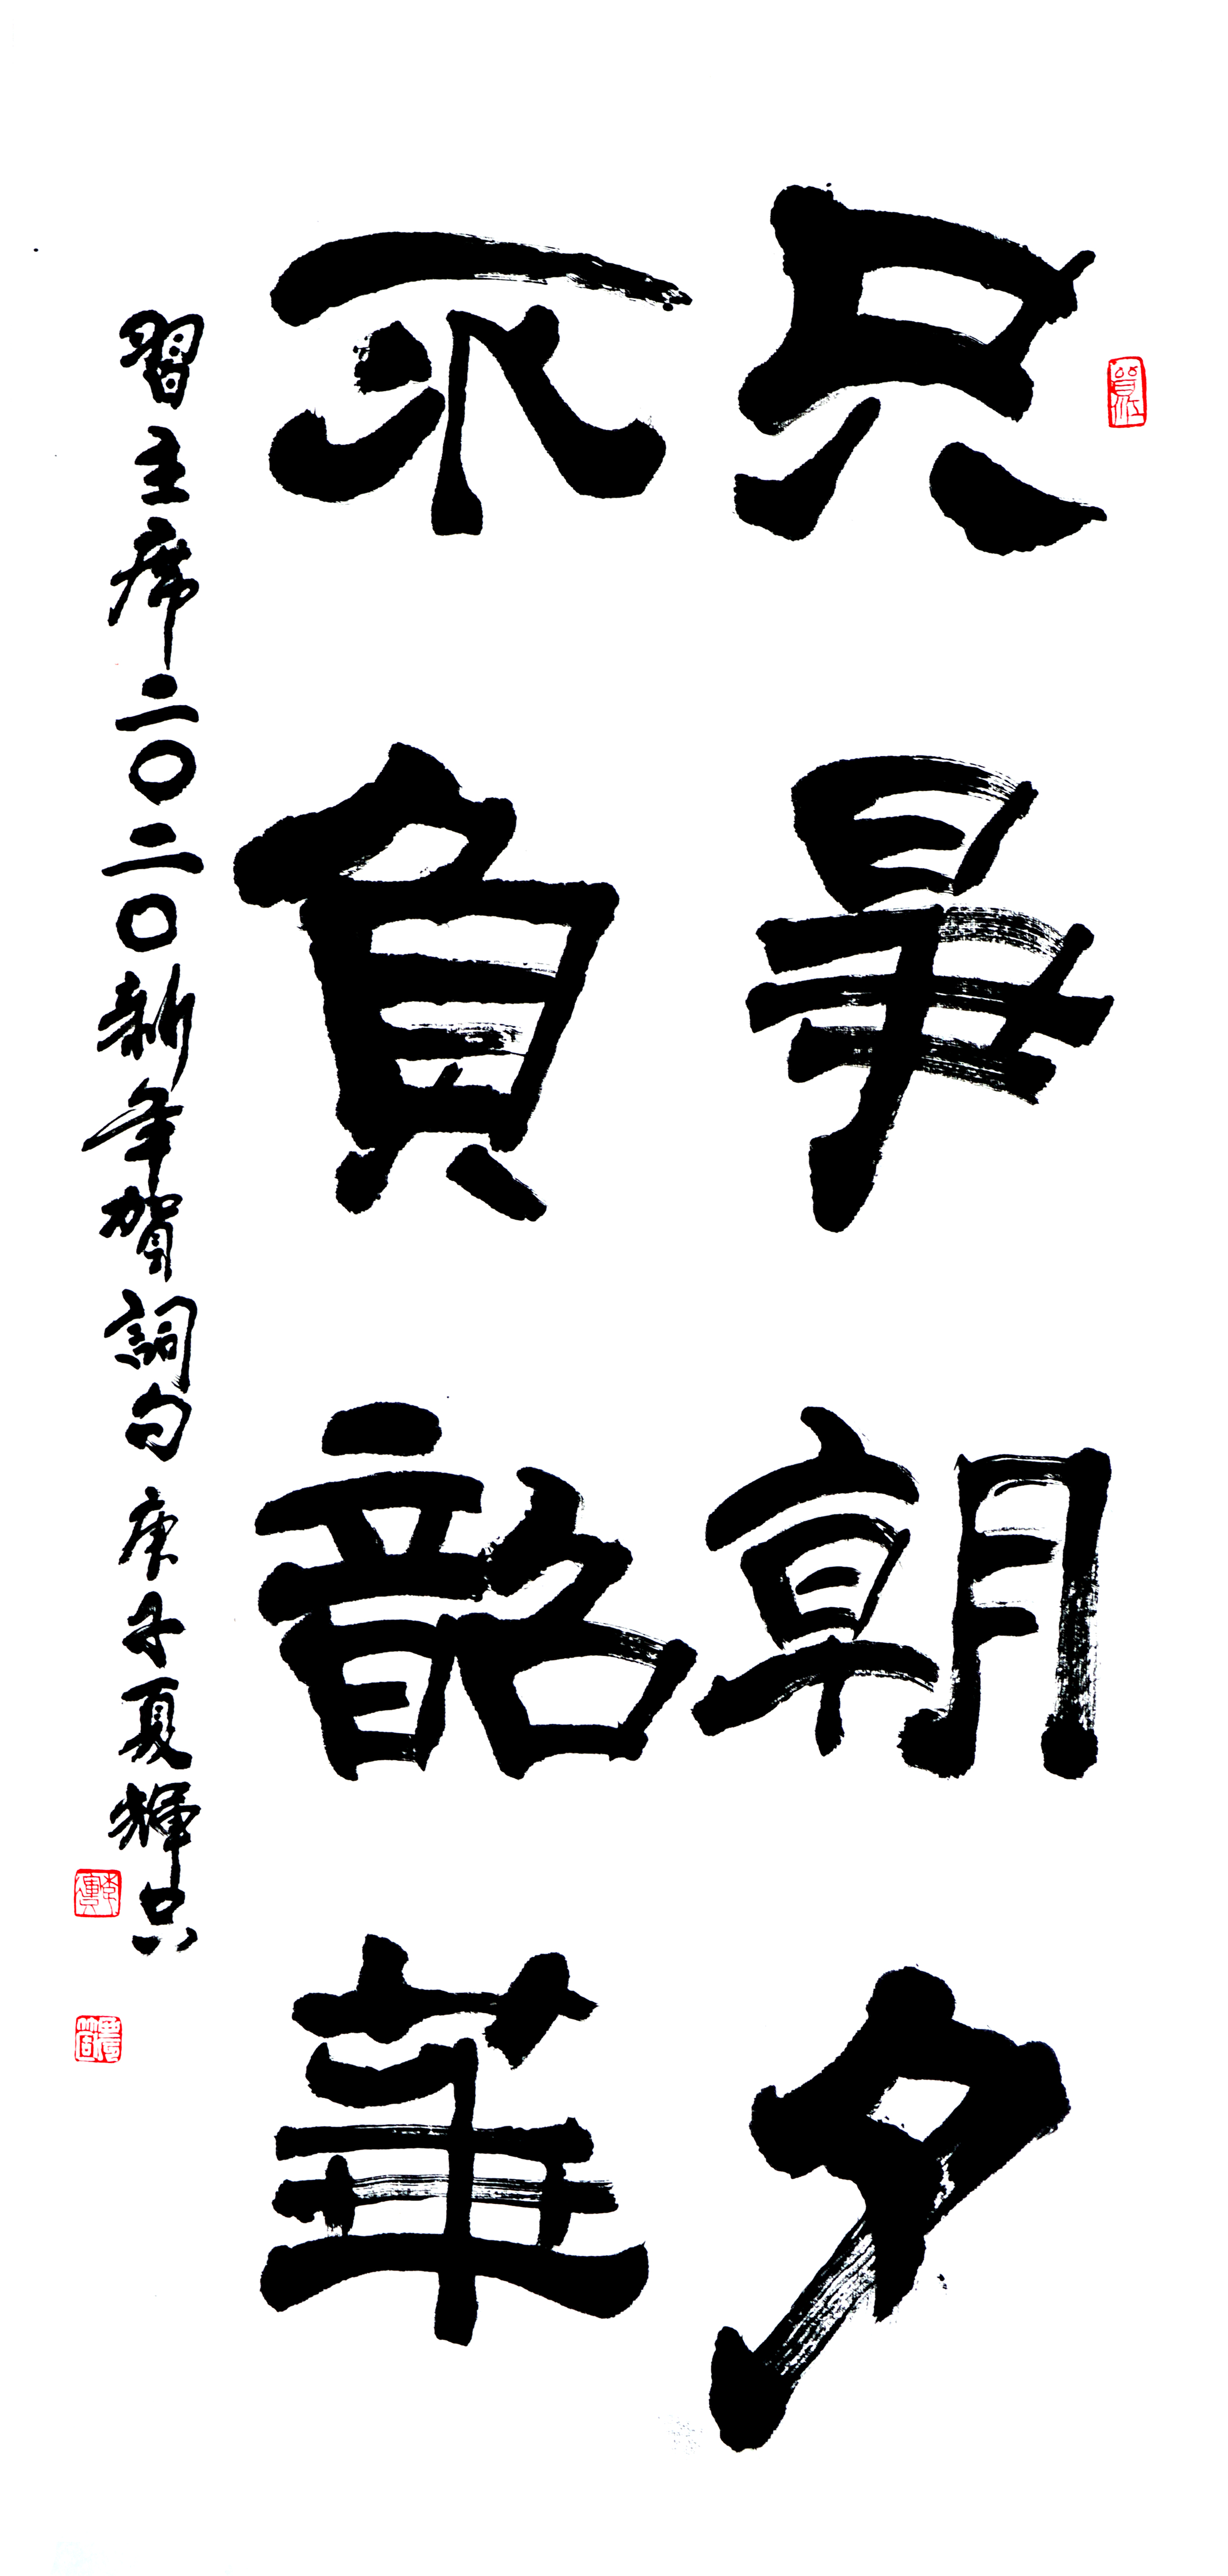 只争朝夕
不負韶華
習主席二〇二〇新年賀詞句庚子夏輝